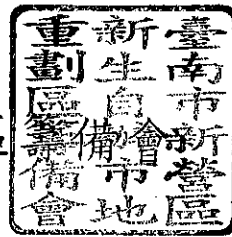 臺南市新營區
新生自辦市地
重劃區籌備會
備會